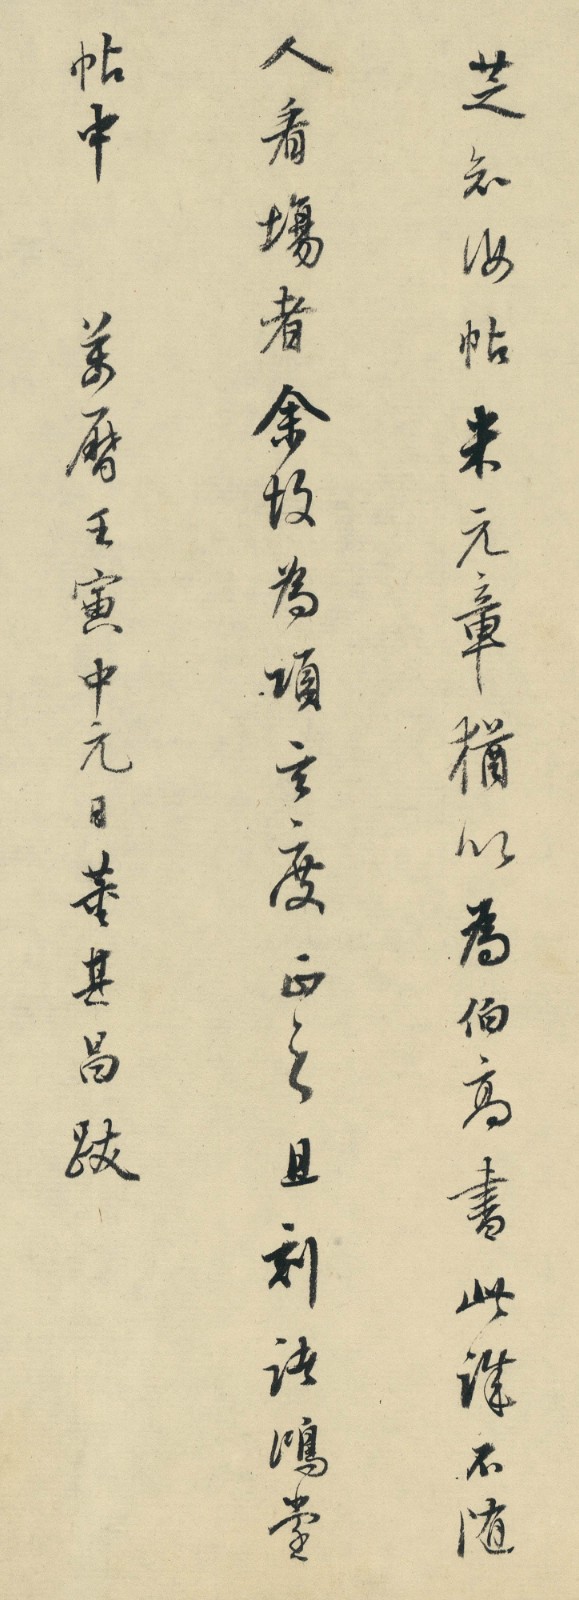 芝知汝帖米元章猶以為伯高書此誰不隨
人看場者余故為項玄度正之且刻諸鴻堂
帖中　萬曆壬寅中元日董其昌跋